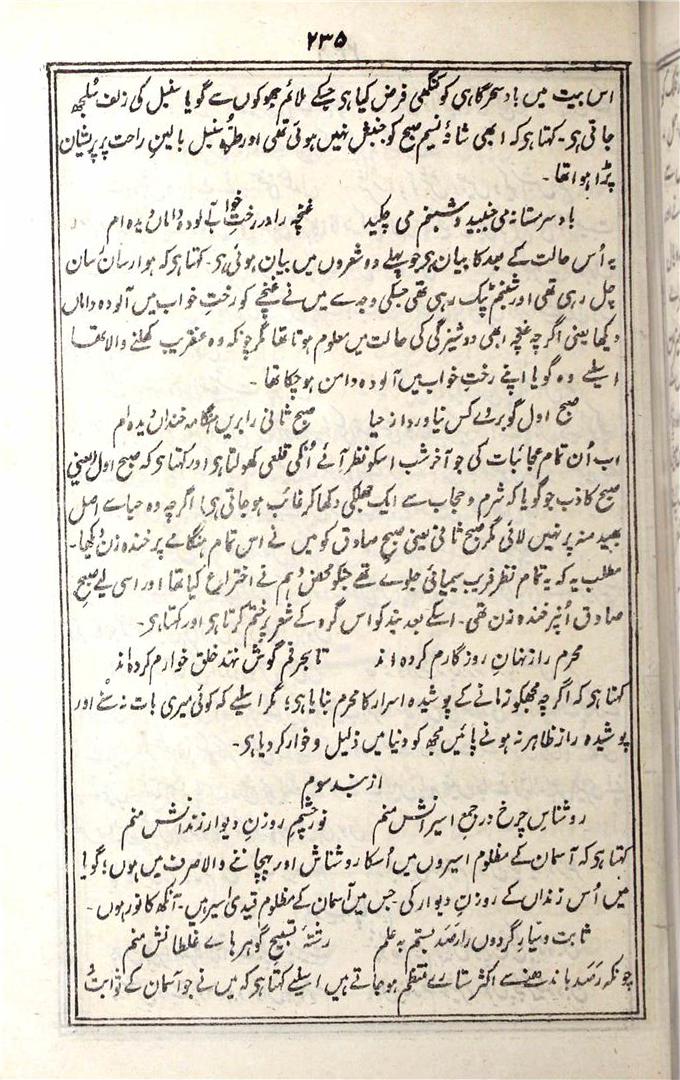 ۲۳۵
اس بیت میں بادِ سحرگاہی کو کنگھی فرض کیا ہی جسکے ملائم جھوکوں سے گویا سنبل کی زلف سُلجھ
جاتی ہی۔ کہتا ہی کہ ابھی شانۂ نسیمِ صبح کو جنبش نہیں ہوئی تھی اور طرّہ سنبل بالینِ راحت پر پریشان
پڑا ہوا تھا۔
باد سرمستانہ می جنبید و شبنم می چکید غنچہ را در رختِ خواب آلودہ داماں دیدہ ام
یہ اُس حالت کے بعد کا بیان ہی جو پہلے دو شعروں میں بیان ہوئی ہی۔ کہتا ہی کہ ہوا رساں رساں
چل رہی تھی اور شبنم ٹپک رہی تھی جسکی وجہ سے میں نے غنچے کو رختِ خواب میں آلودہ داماں
دیکھا یعنی اگرچہ غنچہ ابھی دوشیزگی کی حالت میں معلوم ہوتا تھا مگر چونکہ وہ عنقریب کھلنے والا تھا
اسلیے وہ گویا اپنے رختِ خواب میں آلودہ دامن ہوچکا تھا۔
صبح اول گو بروے کس نیاورد از حیا صبح ثانی را بریں ہنگامہ خنداں دیدہ ام
اب اُن تمام عجائبات کی جو آخر شب اسکو نظر آئے اُنکی قلعی کھولتا ہی اور کہتا ہی کہ صبح اول (یعنی
صبح کاذب جو گویا کہ شرم و حجاب سے ایک جھلکی دکھا کر غائب ہو جاتی ہی) اگرچہ وہ حیا سے اصل
بھید منہ پر نہیں لائی مگر صبح ثانی یعنی صبح صادق کو میں نے اس تمام ہنگامے پر خندہ زن دیکھا۔
مطلب یہ کہ یہ تمام نظر فریب سیمیائی جلوے تھے جنکو محض وہم نے اختراع کیا تھا اور اسی لیے صبح
صادق اُنپر خندہ زن تھی۔ اسکے بعد بند کو اس گرہ کے شعر پر ختم کرتا ہی اور کہتا ہی۔
محرم راز نہانِ روزگارم کردہ اند تا بحرفم گوش ننہد خلق خوارم کردہ اند
کہتا ہی کہ اگرچہ مجھکو زمانے کے پوشیدہ اسرار کا محرم بنایا ہی؛ مگر اسلیے کہ کوئی میری بات نہ سنے اور
پوشیدہ راز ظاہر نہ ہونے پائیں مجھ کو دنیا میں ذلیل و خوار کر دیا ہی۔
از بند سوم
روشناسِ چرخ در جمع اسیرانش منم نورِ چشمِ روزنِ دیوارِ زندانش منم
کہتا ہی کہ آسمان کے مظلوم اسیروں میں اُسکا روشناش اور پہچاننے والا صرف میں ہوں؛ گویا
میں اُس زنداں کے روزنِ دیوار کی۔ جس میں آسمان کے مظلوم قیدی اسیر ہیں۔ آنکھ کا نور ہوں۔
ثابت و سیارِ گردوں را رصد بستم بہ علم رشتۂ تسبیحِ گوہرہاے غلطانش منم
چونکہ رصد باندھنے سے اکثر ستارے منتظم ہو جاتے ہیں اسلیے کہتا ہی کہ میں نے جو آسمان کے ثوابت